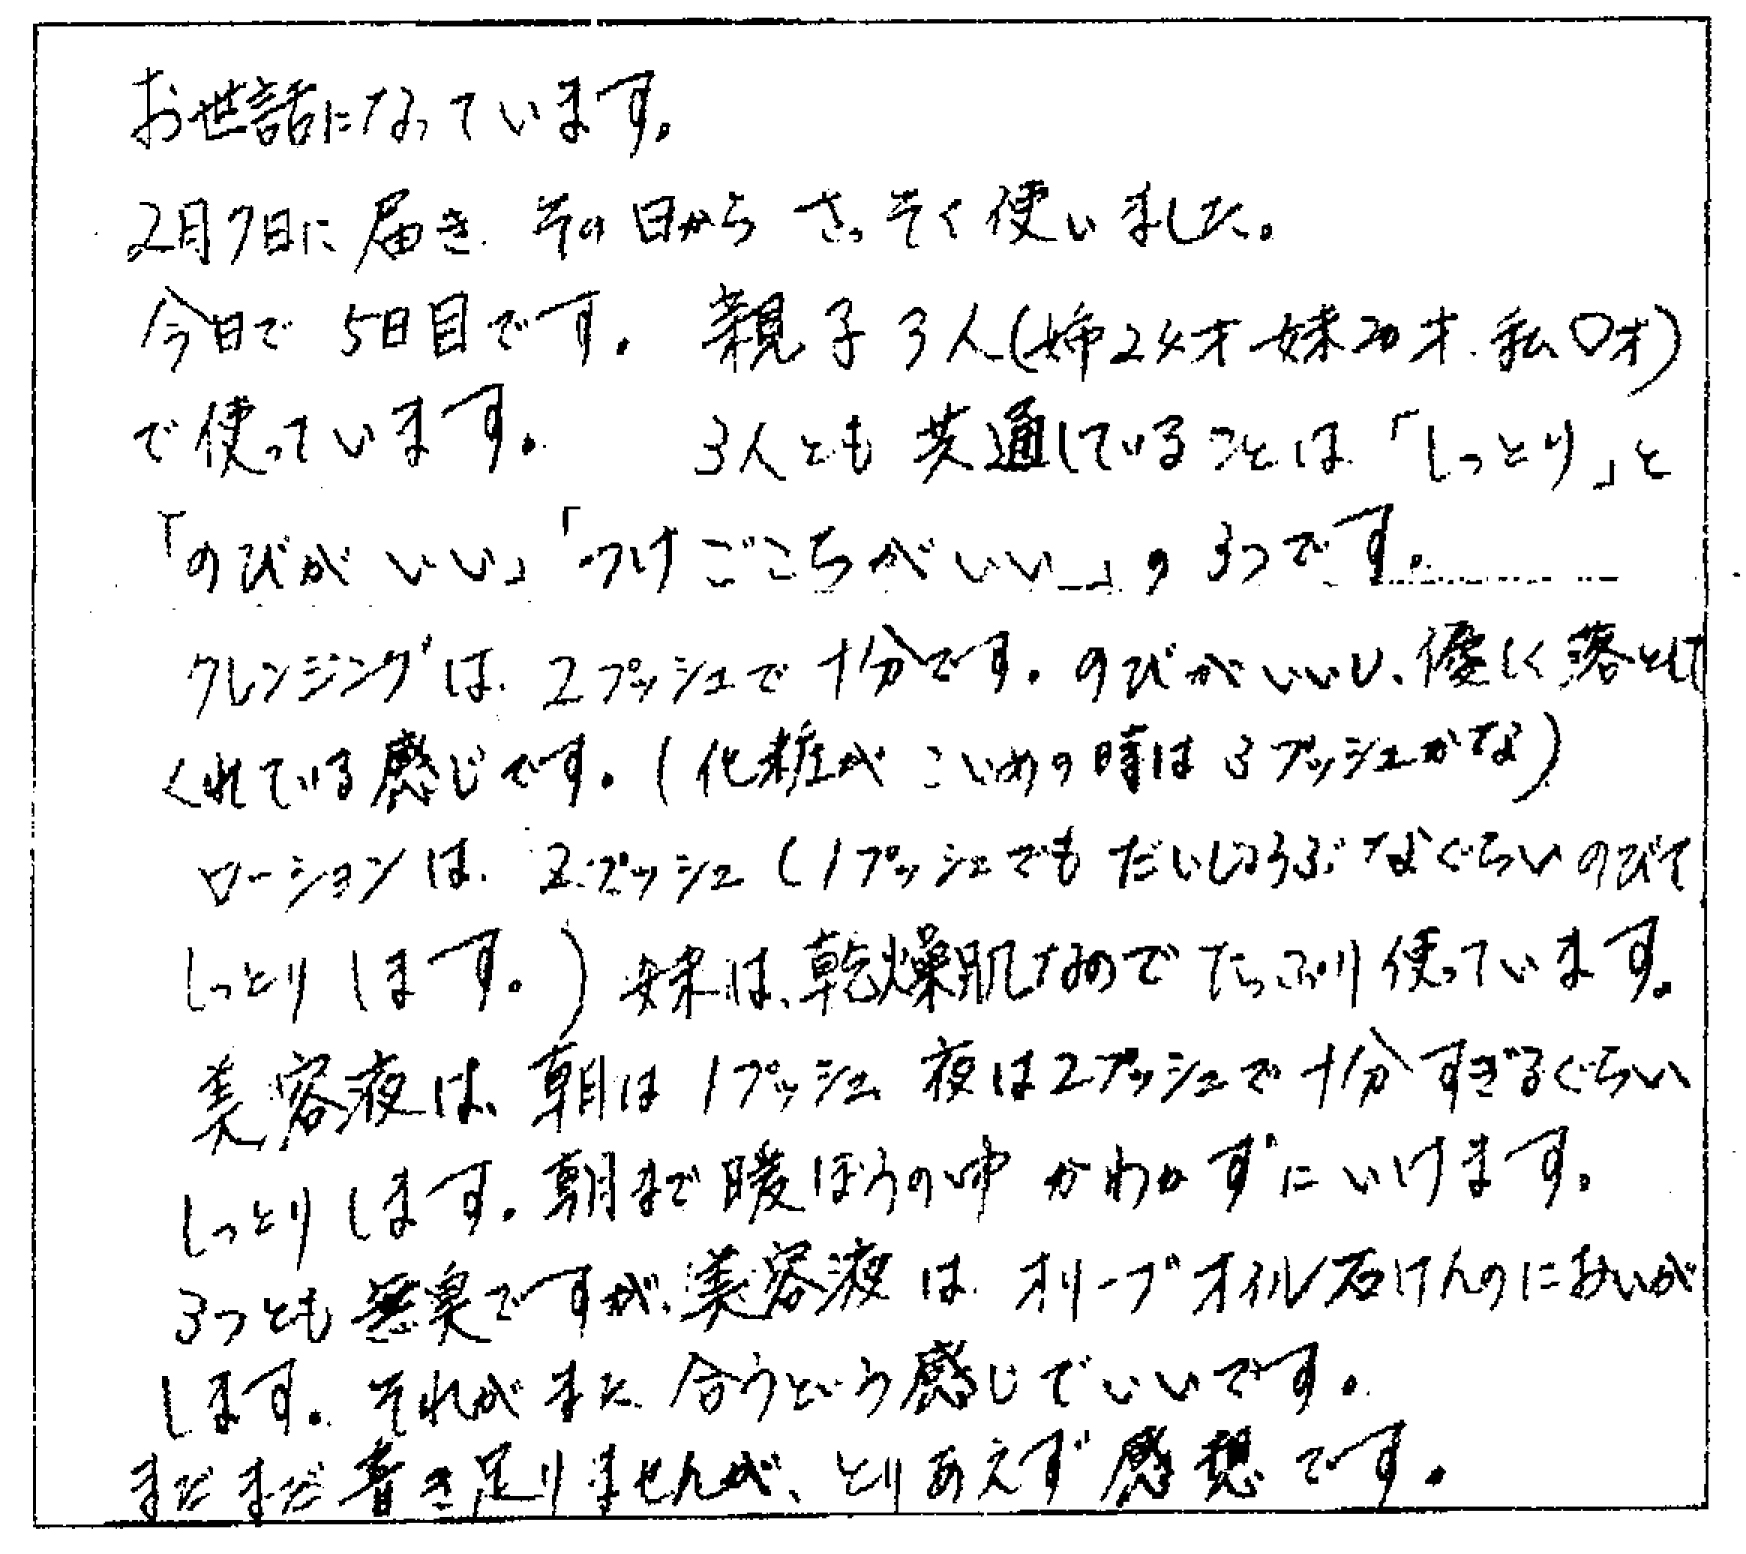 お世話になっています。
2月7日に届き、その日から さっそく使いました。
今日で 5日目です。 親子3人(姉24才 妹20才 私〇才)
で使っています。 3人とも 共通していることは「しっとり」と
「のびがいい」「つけごこちがいい」の 3つです。
クレンジングは、2プッシュで十分です。のびがいいし、優しく落として
くれている感じです。(化粧がこいめの時は3プッシュかな)
ローションは、2プッシュ(1プッシュでもだいじょうぶなぐらいのびて
しっとりします。)妹は、乾燥肌なのでたっぷり使っています。
美容液は、朝は1プッシュ、夜は2プッシュで十分すぎるぐらい
しっとりします。朝まで暖ぼうの中かわかずにいけます。
3つとも無臭ですが、美容液は オリーブオイル石けんのにおいが
します。それがまた合うという感じでいいです。
まだまだ書き足りませんが、とりあえず感想です。